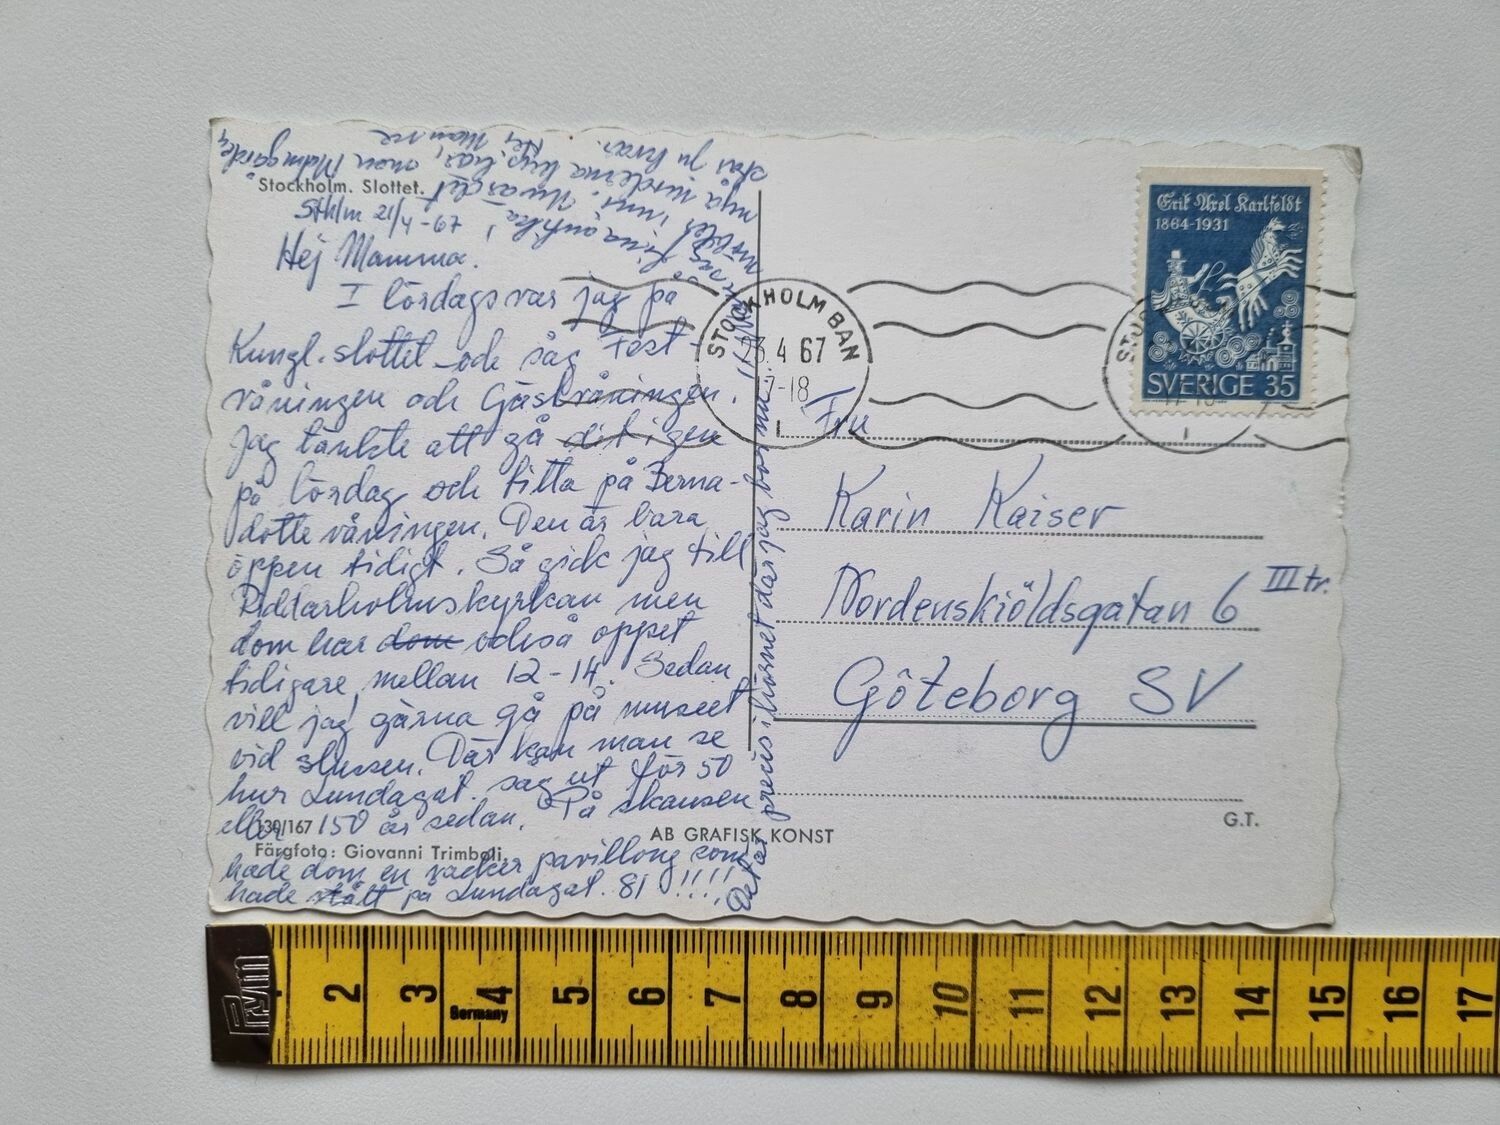 Stockholm. Slottet.
Sthlm 21/4-67
Hej Mamma.
I lördags var jag på
Kungl. slottet och såg Fest-
våningen och Gästvåningen.
Jag tänkte att gå dit igen
på lördag och titta på Berna-
dotte våningen. Den är bara
öppen tidigt. Så gick jag till
Riddarholmskyrkan men
dom har dom också öppet
tidigare mellan 12-14. Sedan
vill jag gärna gå på museet
vid slussen. Där kan man se
hur Lundagat. sag ut för 50
eller 150 år sedan. På Skansen
hade dom en vacker pavillong som
hade stått på Lundagat. 81 !!!!
Det är precis i hörnet där jag bor nu.
möbler inni. Huvaret
nya moderna hus här, onom Malmgårde
står ju kvar.
Hej
130/167
Färgfoto: Giovanni Trimboli.
AB GRAFISK KONST
G.T.
STOCKHOLM BAN
23.4 67
17-18
1
Erik Axel Karlfeldt
1864-1931
SVERIGE 35
Fru
Karin Kaiser
Nordenskiöldsgatan 6 III tr.
Göteborg SV
Prym
Germany
2 3 4 5 6 7 8 9 10 11 12 13 14 15 16 17